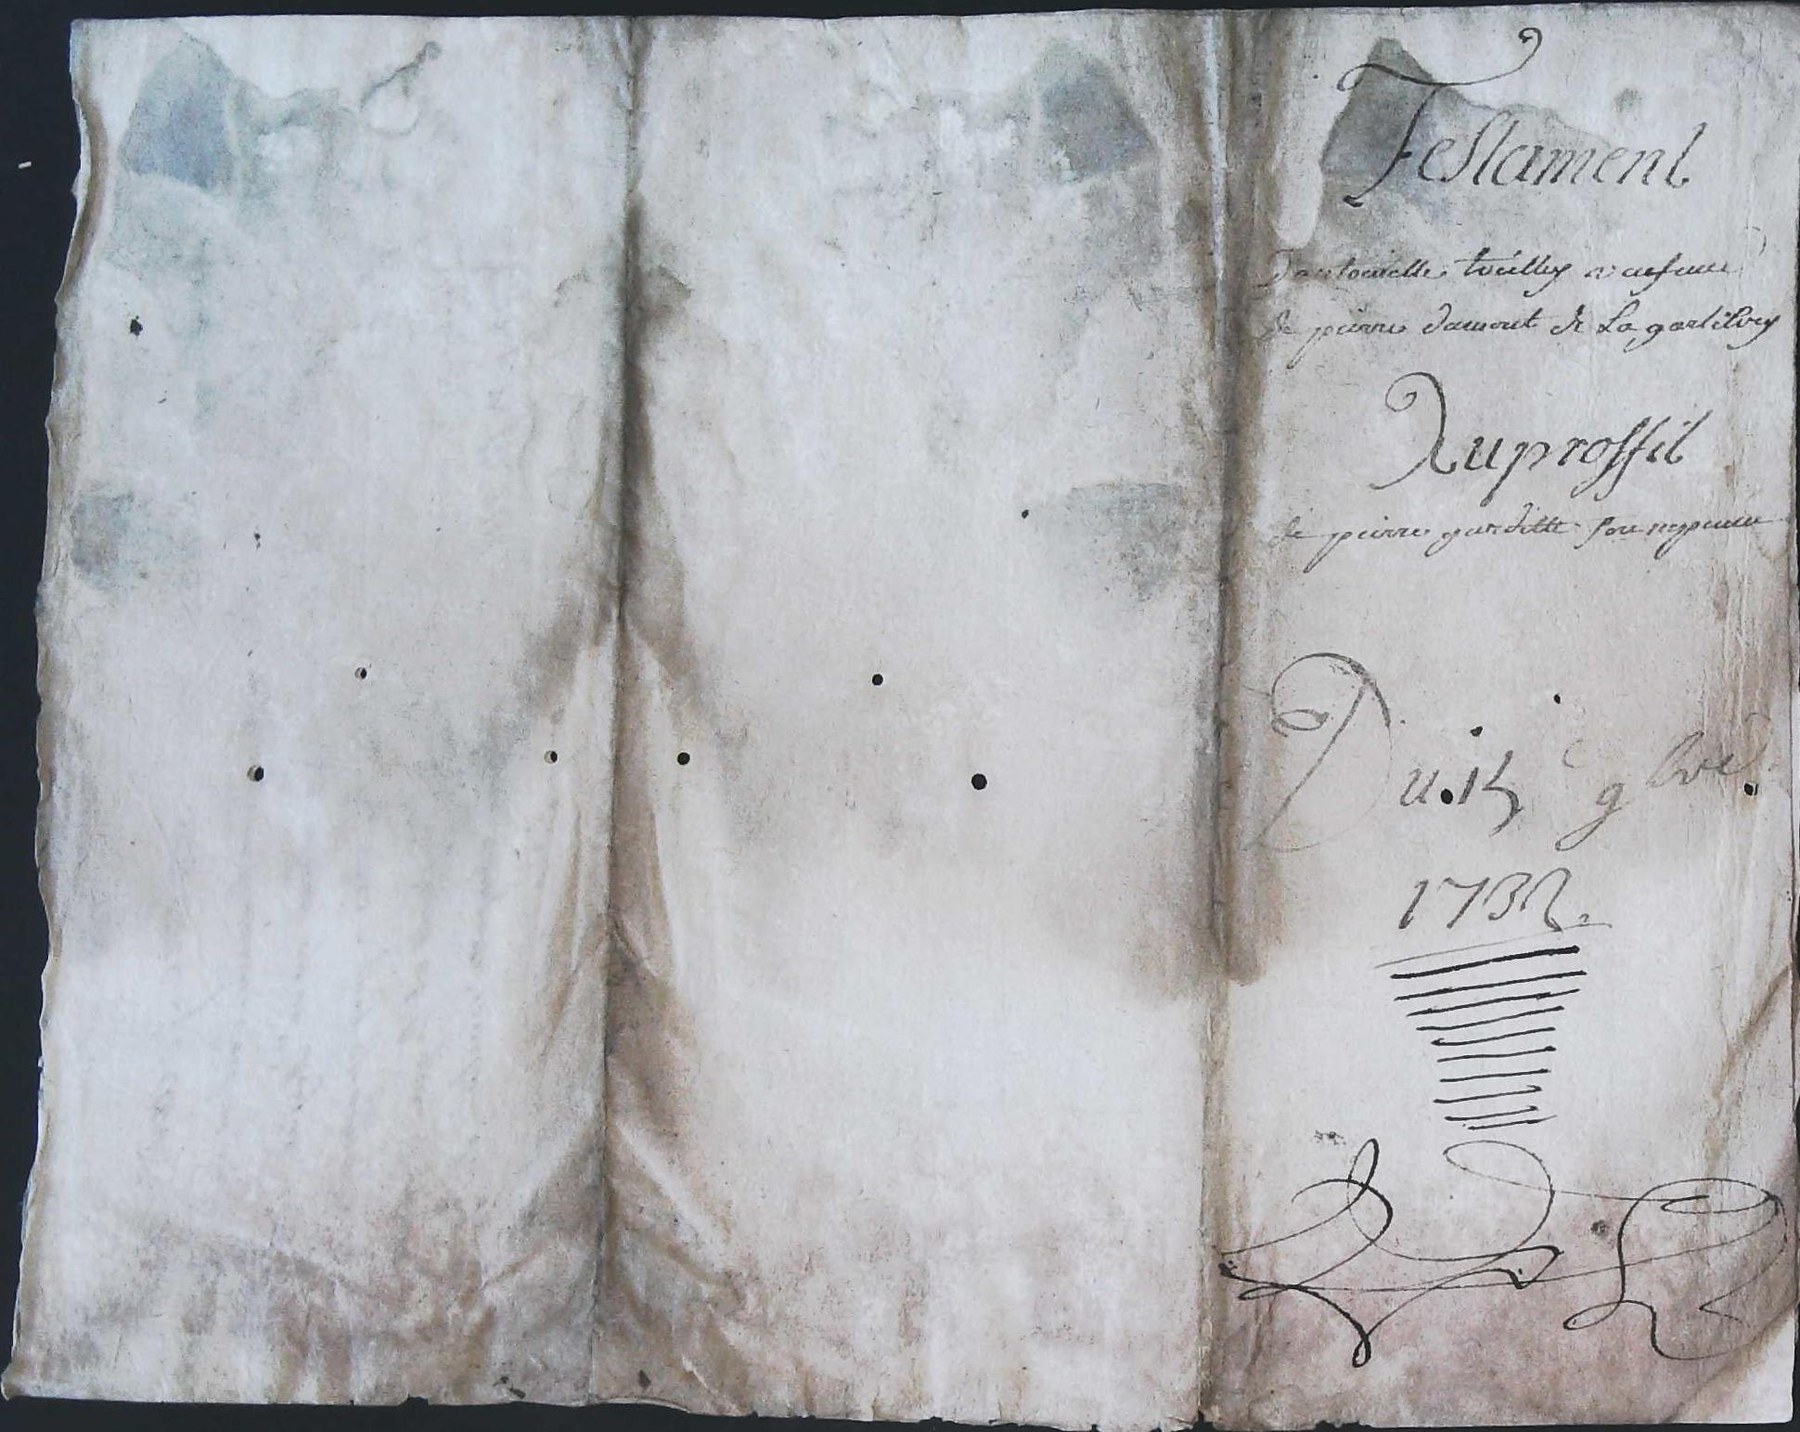 Testament
d'antoinette treilley veufuue
de pierre damont de La
Auproffit
de pierre gardette son nepueu
Du. 9bre.
1732.